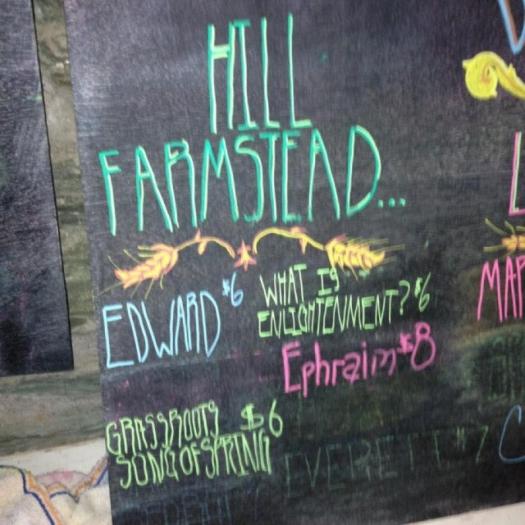 HILL
FARMSTEAD...
EDWARD $6
WHAT IS
ENLIGHTENMENT? $6
Ephraim $8
GRASSROOTS $6
SONG OF SPRING
EVERETT $7
MAR